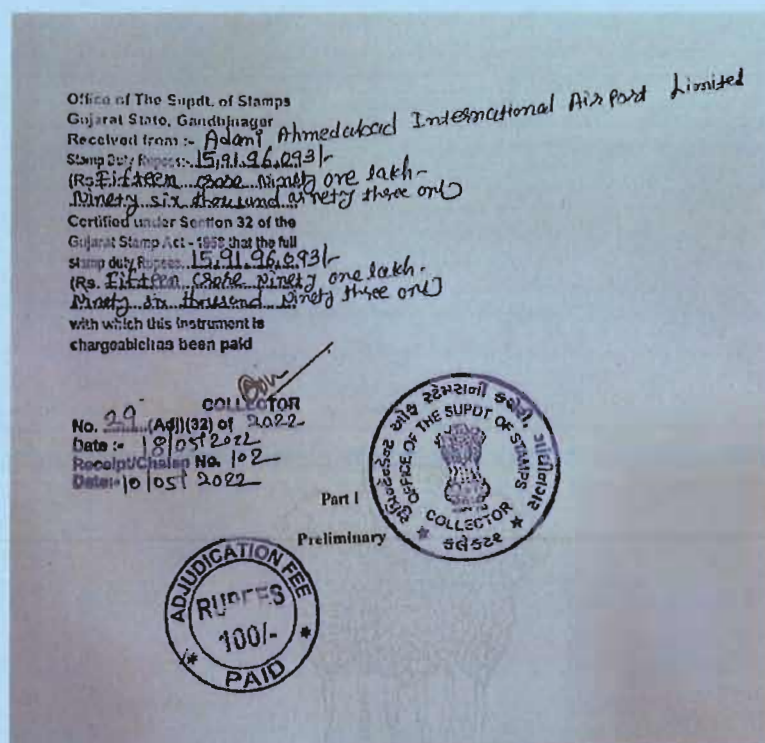 Office of The Supdt. of Stamps
Gujarat State, Gandhinagar
Received from :- Adani Ahmedabad International Airport Limited
Stamp Duty Rupees:- 15,91,96,093/-
(Rs. Fifteen crore Ninety one lakh -
Ninety six thousand ninety three only)
Certified under Section 32 of the
Gujarat Stamp Act - 1958 that the full
stamp duty Rupees. 15,91,96,093/-
(Rs. Fifteen crore Ninety one lakh -
Ninety six thousand Ninety three only)
with which this instrument is
chargeable has been paid
COLLECTOR
No. 29 (Adj)(32) of 2022
Date :- 18/05/2022
Receipt/Chalan No. 102
Date:- 10/05/2022
Part I
Preliminary
ગાંધીનગર
OFFICE OF THE SUPDT OF STAMPS
COLLECTOR
કલેકટર
ADJUDICATION FEE
RUPEES
100/-
PAID